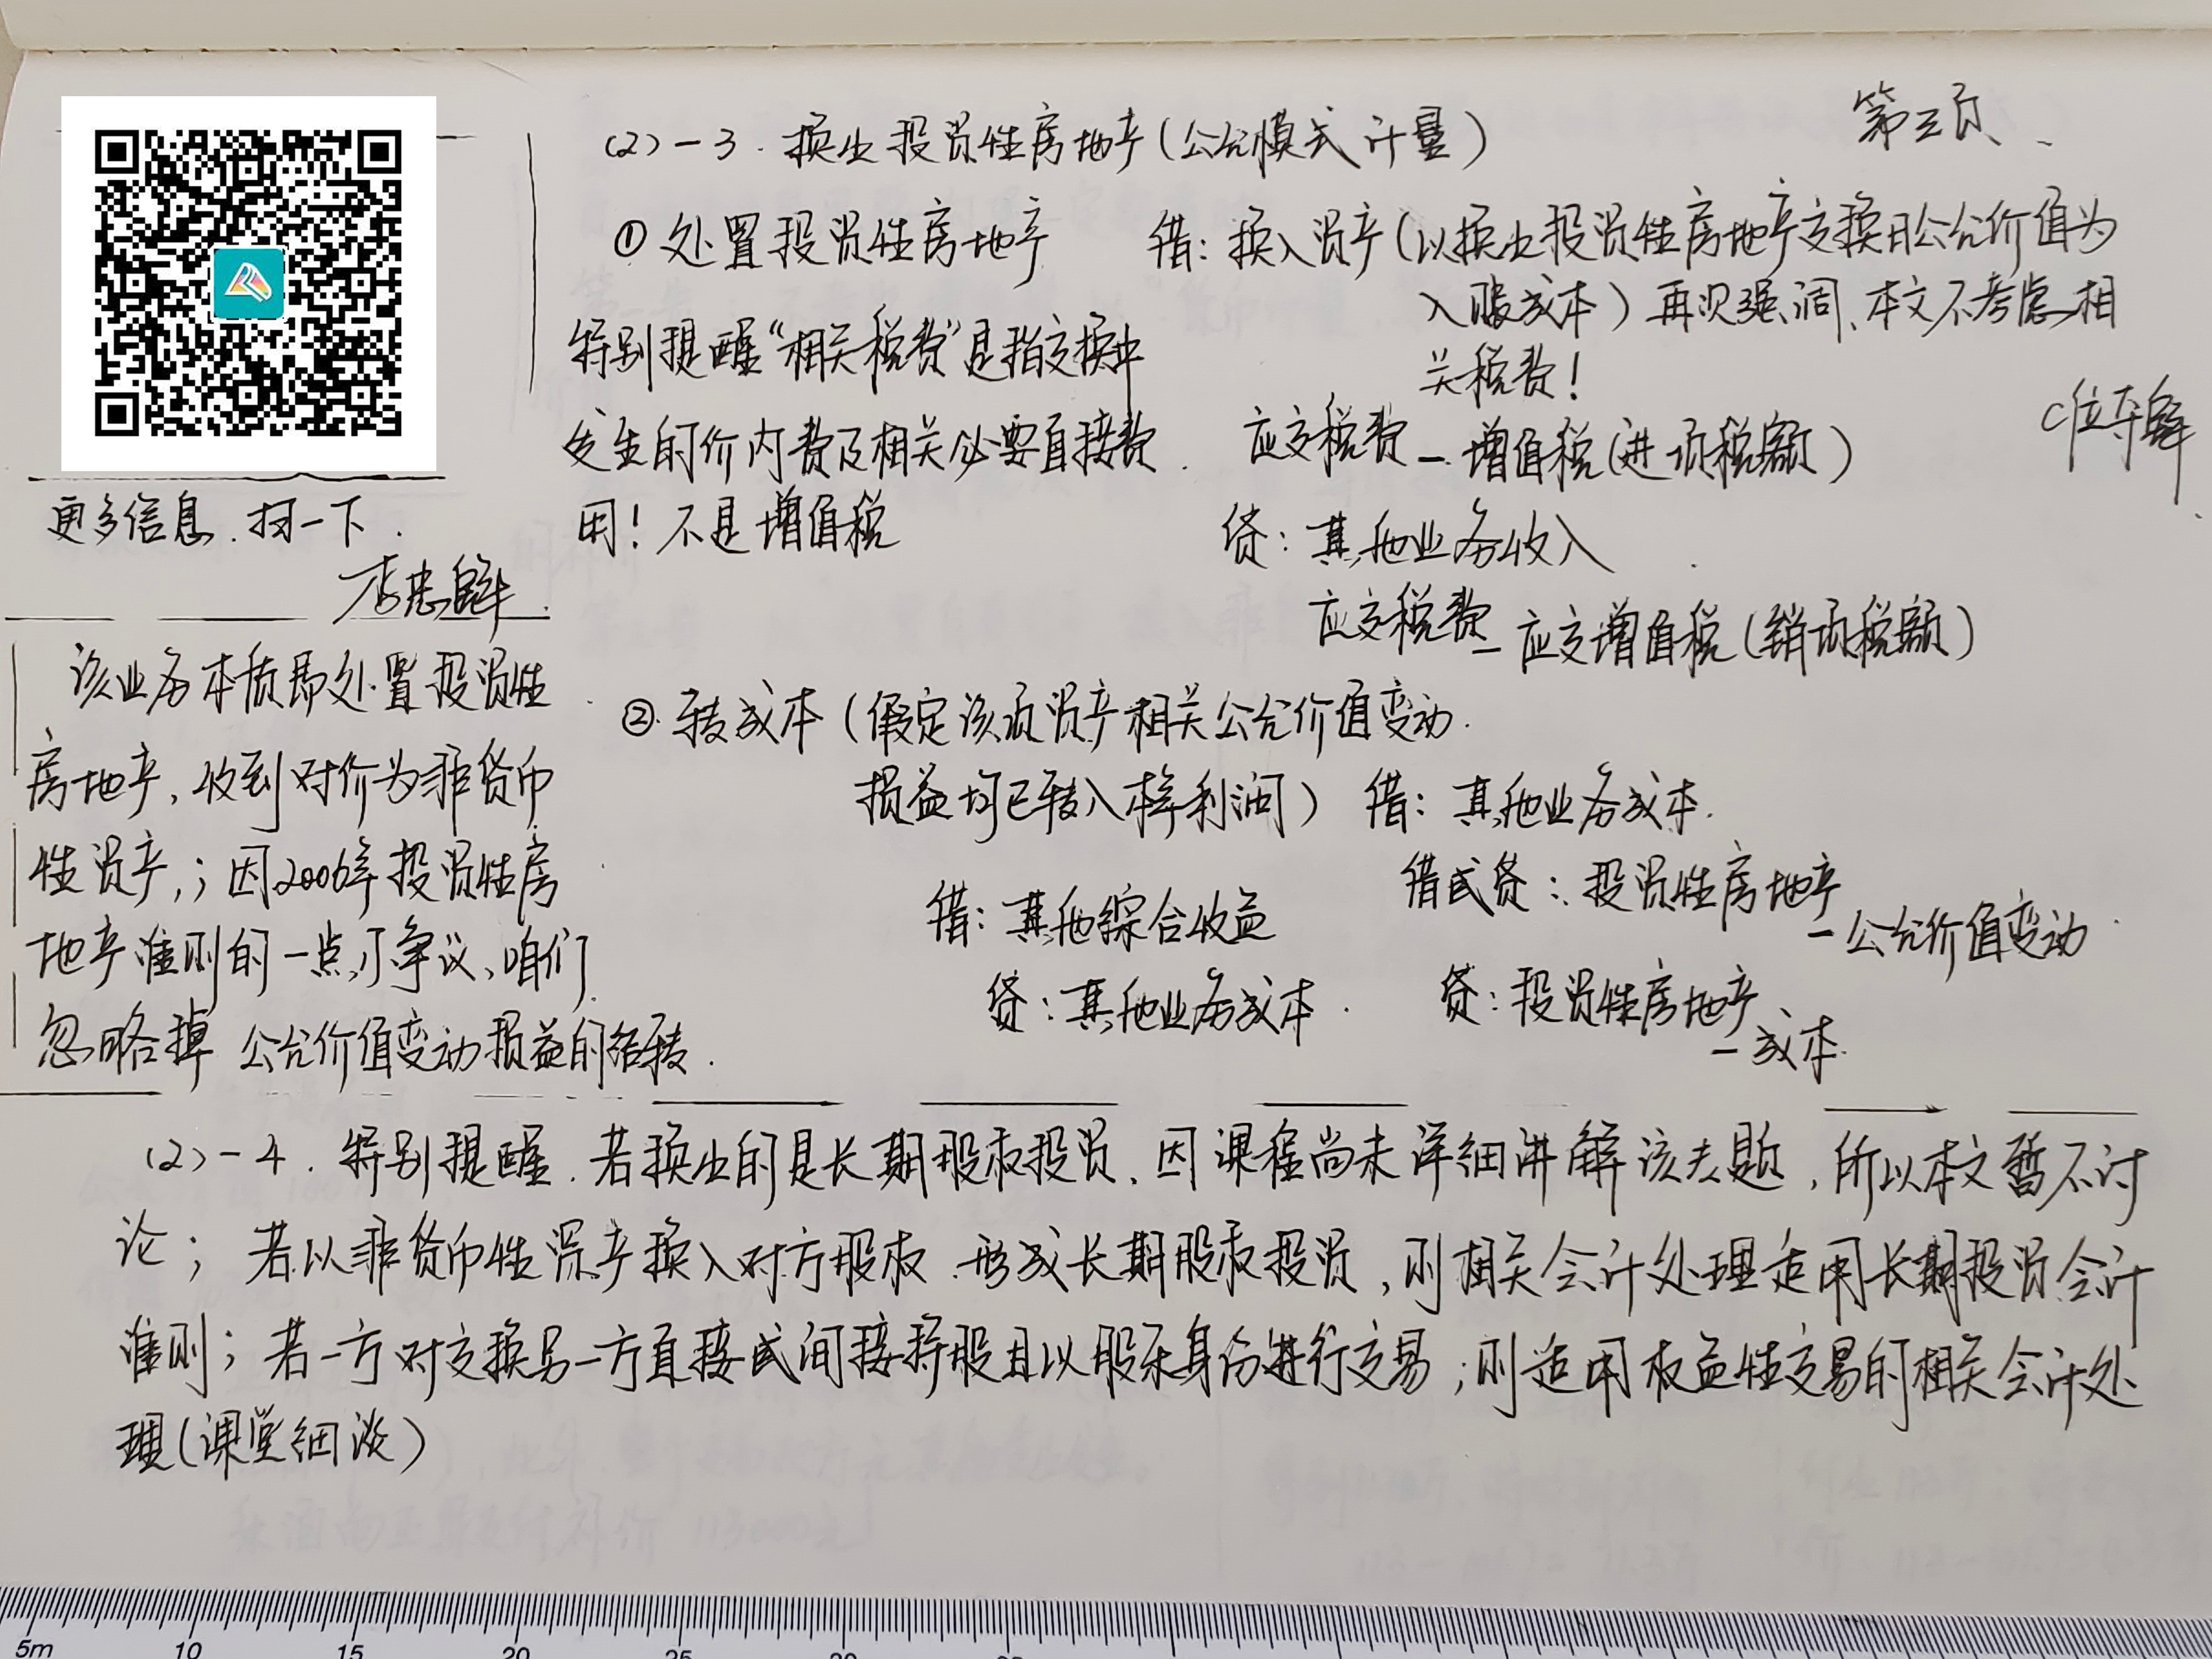 第三页、
(2)-3. 换出投资性房地产(公允模式计量)
①处置投资性房地产
借: 换入资产(以换出投资性房地产交换日公允价值为
入账成本) 再次强调、本文不考虑相
关税费!
特别提醒“相关税费”是指交换中
发生的价内费及相关必要直接费
用! 不是增值税
应交税费-增值税(进项税额)
C位夺魁
贷: 其他业务收入
应交税费-应交增值税(销项税额)
更多信息.扫一下.
该业务本质即处置投资性
房地产,收到对价为非货币
性资产,;因2006年投资性房
地产准则的一点儿争议、咱们
忽略掉 公允价值变动损益的结转.
②.转成本(假定该项资产相关公允价值变动.
损益均已转入本年利润) 借: 其他业务成本.
借或贷: 投资性房地产
-公允价值变动
贷: 投资性房地产
-成本.
借: 其他综合收益
贷: 其他业务成本.
(2)-4. 特别提醒.若换出的是长期股权投资、因课程尚未详细讲解该专题,所以本文暂不讨
论; 若以非货币性资产换入对方股权.形成长期股权投资,则相关会计处理适用长期投资会计
准则; 若一方对交换另一方直接或间接持股且以股东身份进行交易;则适用权益性交易的相关会计处
理(课堂细谈)
5m 10 15 20 25 30